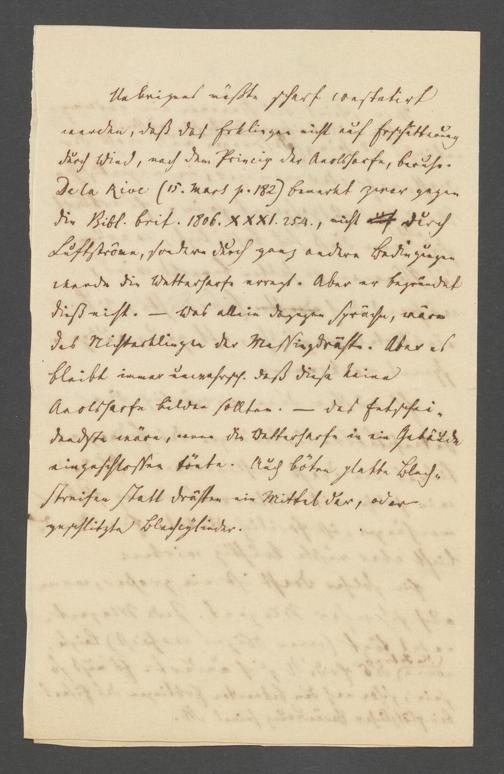 Uebrigens müßte scharf constatirt
werden, daß das Erklingen nicht auf Erschütterung
durch Wind, nach dem Princip der Aeolsharfe, beruhe.
De la Rive (15. Mars p. 182) bemerkt zwar gegen
die Bibl. brit. 1806. XXXI. 254., nicht durch
Luftströme, sondern durch ganz andere Bedingungen
werde die Wetterharfe erregt. Aber er begründet
dieß nicht. — Was allein dagegen spräche, wäre
das Nichterklingen der Messingdrähte. Aber es
bleibt immer unwahrsch. daß diese keine
Aeolsharfe bilden sollten. — Das Entschei-
dendste wäre, wenn die Wetterharfe in ein Gebäude
eingeschlossen tönte. Auch böten platte Blech-
streifen statt Drähten ein Mittel dar, oder
geschlitzte Blechcylinder.